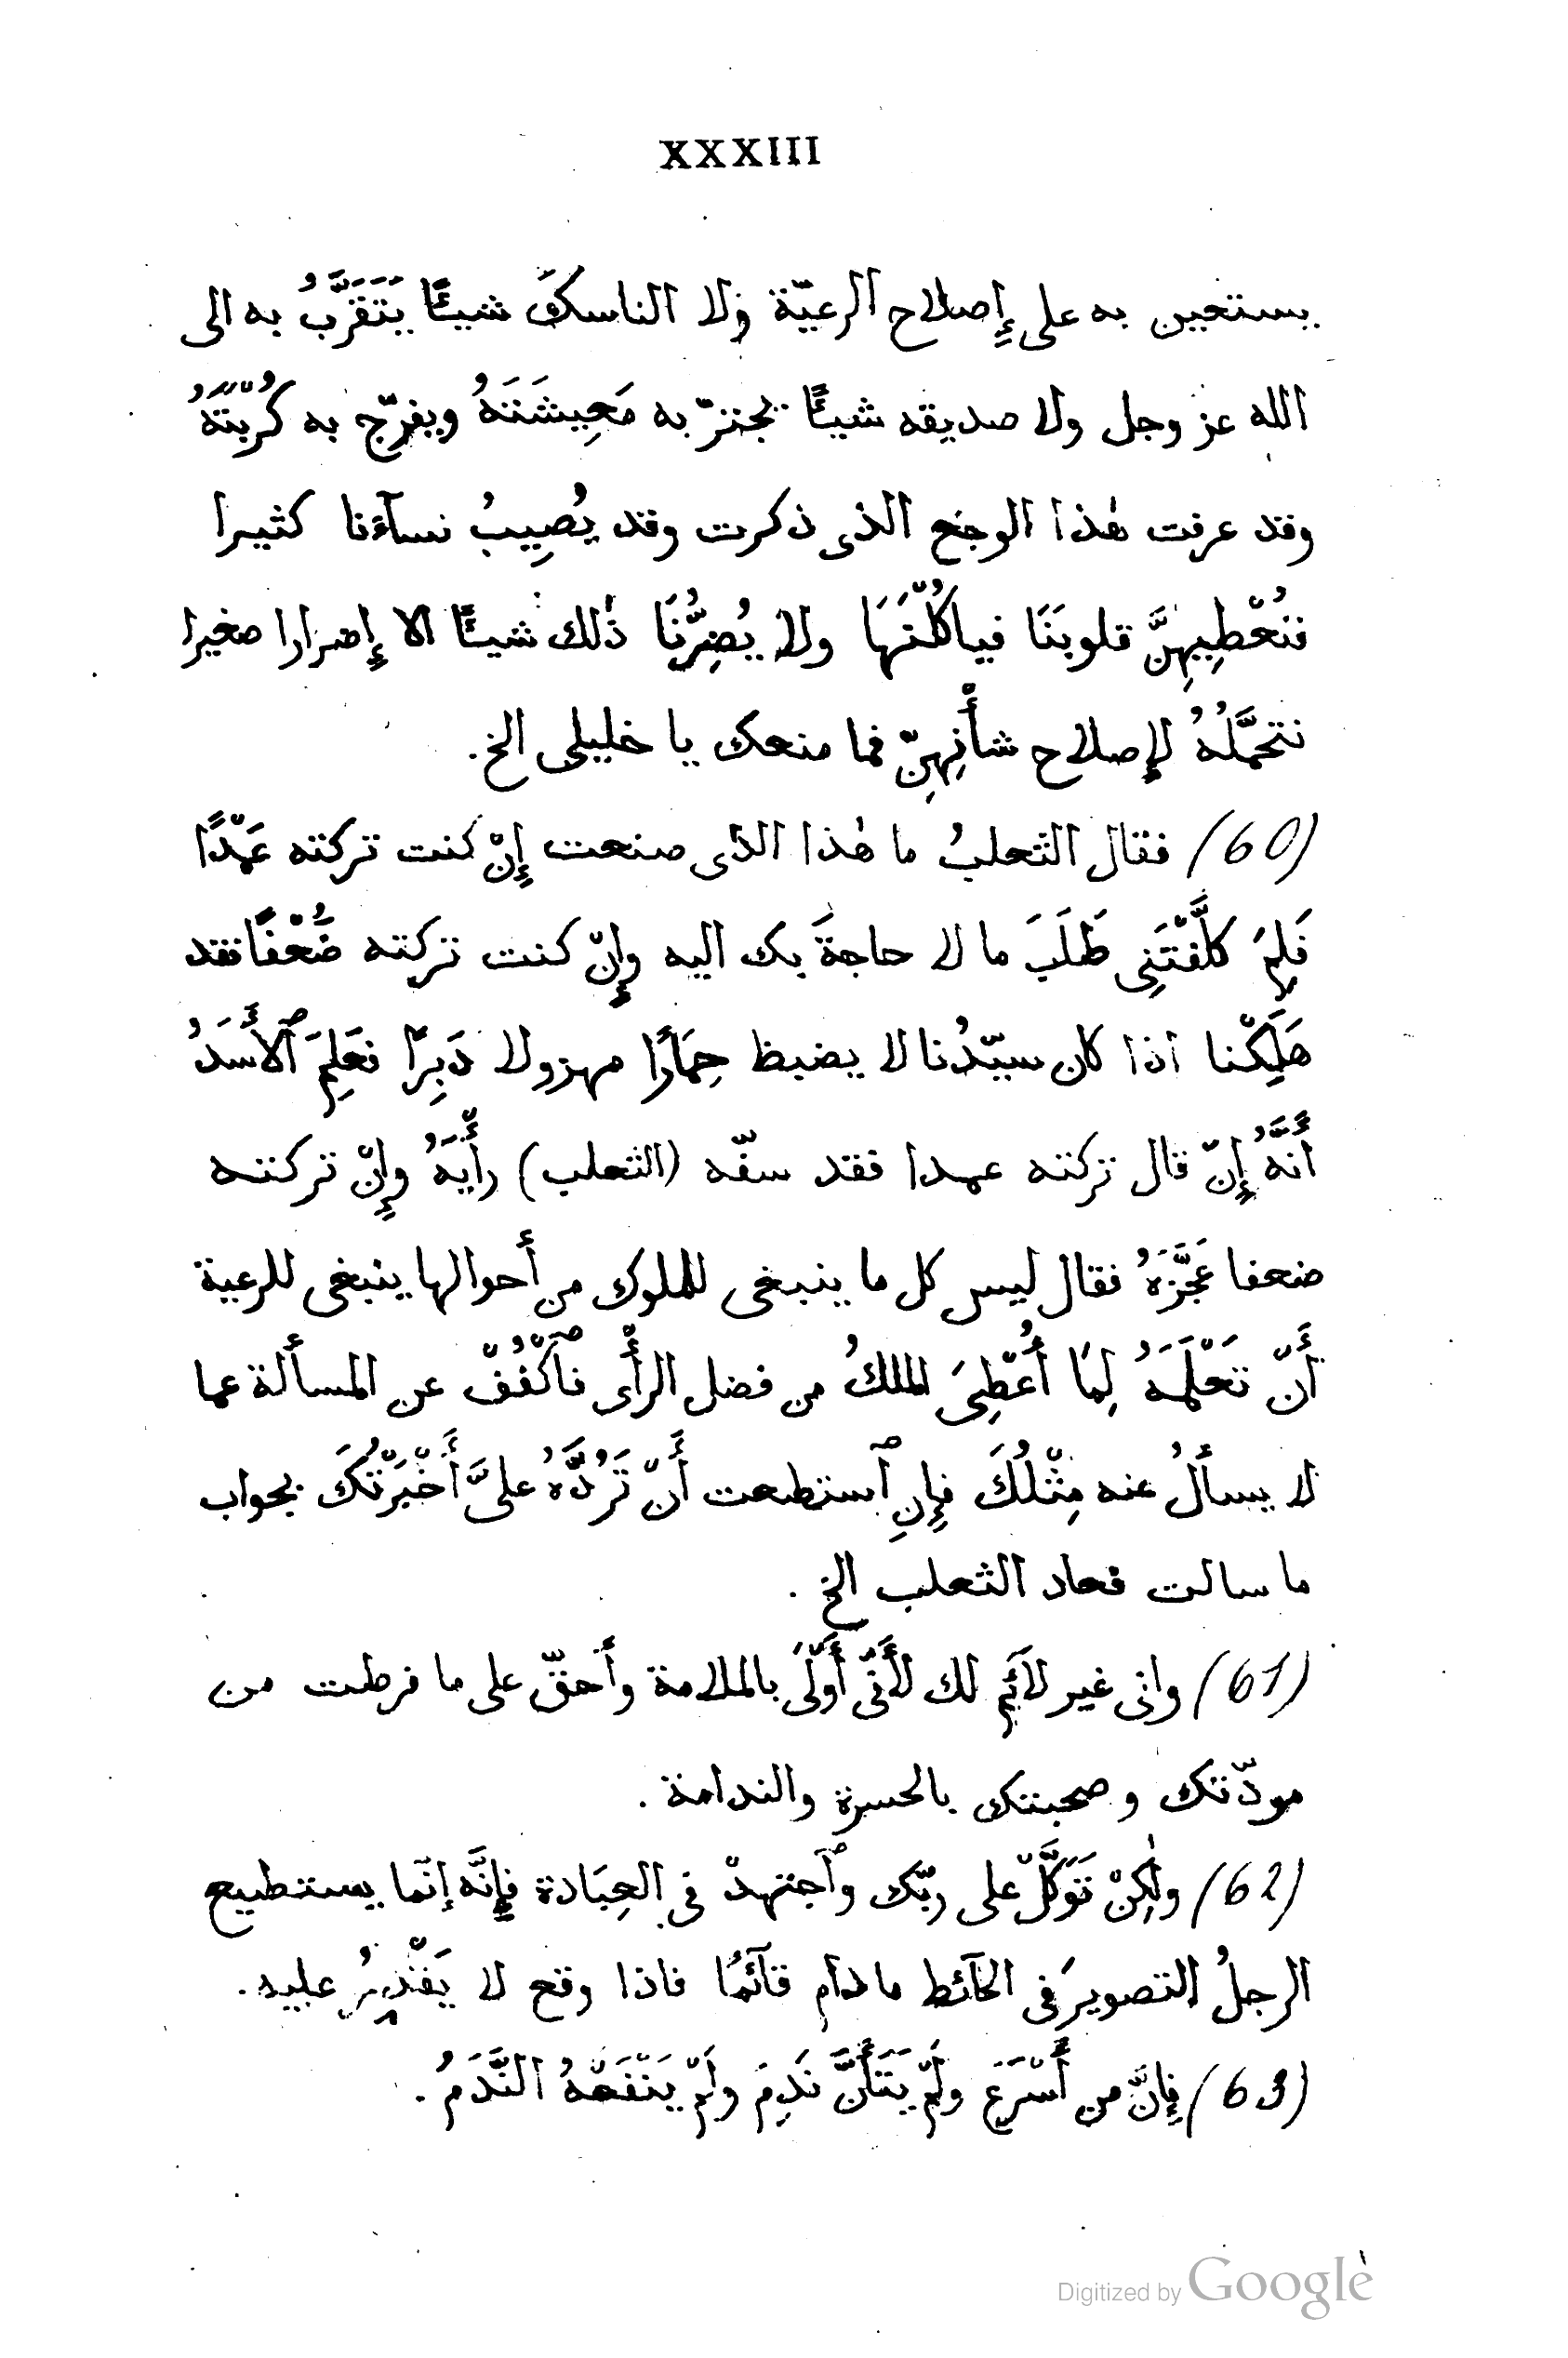 XXXIII
يستعين به على إِصلاح الرعيّة ولا الناسكَ شيـًٔا يَتَقَرَّبُ به الى
الله عز وجل ولا صديقه شيـًٔا يجتر به مَعِيشَتَهُ ويفرّج به كُرْبَتَهُ
وقد عرفت هٰذا الوجع الذى ذكرت وقد يُصِيبُ نسآءنا كثيرا
فنُعْطِيهِنَّ قلوبَنَا فياكُلْنَهَا ولا يُضِرُّنَا ذٰلك شيـًٔا الا إِضرارا صغيرا
نتحمَّلُهُ لإِصلاح شأْنِهِنّ فما منعك يا خليلى الخ.
(60) فقال الثعلبُ ما هٰذا الذى صنعت إِنْ كنت تركته عَمْدًا
فَلِمَ كلَّفْتَنِى طَلَبَ ما لا حاجةَ بك اليه وإِنْ كنت تركته ضُعْفًا فقد
هَلَكْنا اذا كان سيّدُنا لا يضبط حِمَارًا مهزولا دَبِرًا فعَلِمَ ٱلأَسَدُ
أَنَّهُ إِنْ قال تركته عمدا فقد سفّه (الثعلب) رأْيَهُ وإِنْ تركته
ضعفا عَجَّزَهُ فقال ليس كل ما ينبغى للملوك من أحوالها ينبغى للرعية
أَنْ تَعْلَمَهُ لِمَا أُعْطِىَ الملكُ من فضل الرأْى فٱكْفُفْ عن المسألة عما
لا يسألُ عنه مِثْلُكَ فإِنِ ٱستطعت أَنْ تَرُدَّهُ علىَّ أَخْبَرْتُكَ بجواب
ما سالت فعاد الثعلب الخ.
(61) وانى غير لآئم لك لأَنّى أَوْلَى بالملامة وأحقّ على ما فرطت من
مودّتك وصحبتك بالحسرة والندامة.
(62) ولٰكِنْ تَوَكَّلْ على ربّك وٱجتهدْ فى العِبَادة فإِنَّه إنّما يستطيع
الرجلُ التصويرَ فى الحآئط ما دام قآئمًا فاذا وقع لا يَقْدِرُ عليه.
(63) فإِنَّ من أَسْرَعَ ولَمْ يَتَأَنَّ نَدِمَ ولَمْ يَنْفَعْهُ النَّدَمُ.
Digitized by Google